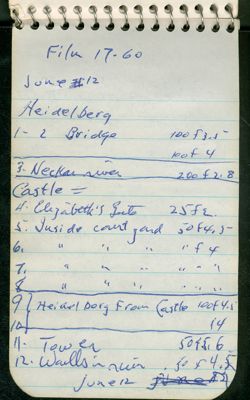 Film 17-60
June 12
Heidelberg
1-2 Bridge 100 f 3.5
100 f 4
3. Neckar river 200 f 2.8
Castle =
4. Elizabeth's Gate 25 f 2
5. Inside courtyard 50 f 4.5
6. " " " " f 4
7. " " " "
8 " " " "
9 Heidelberg From Castle 100 f 4.5
10 f4
11. Tower 50 f 5.6
12. Walls in ruin 50 f 4.5
June 12